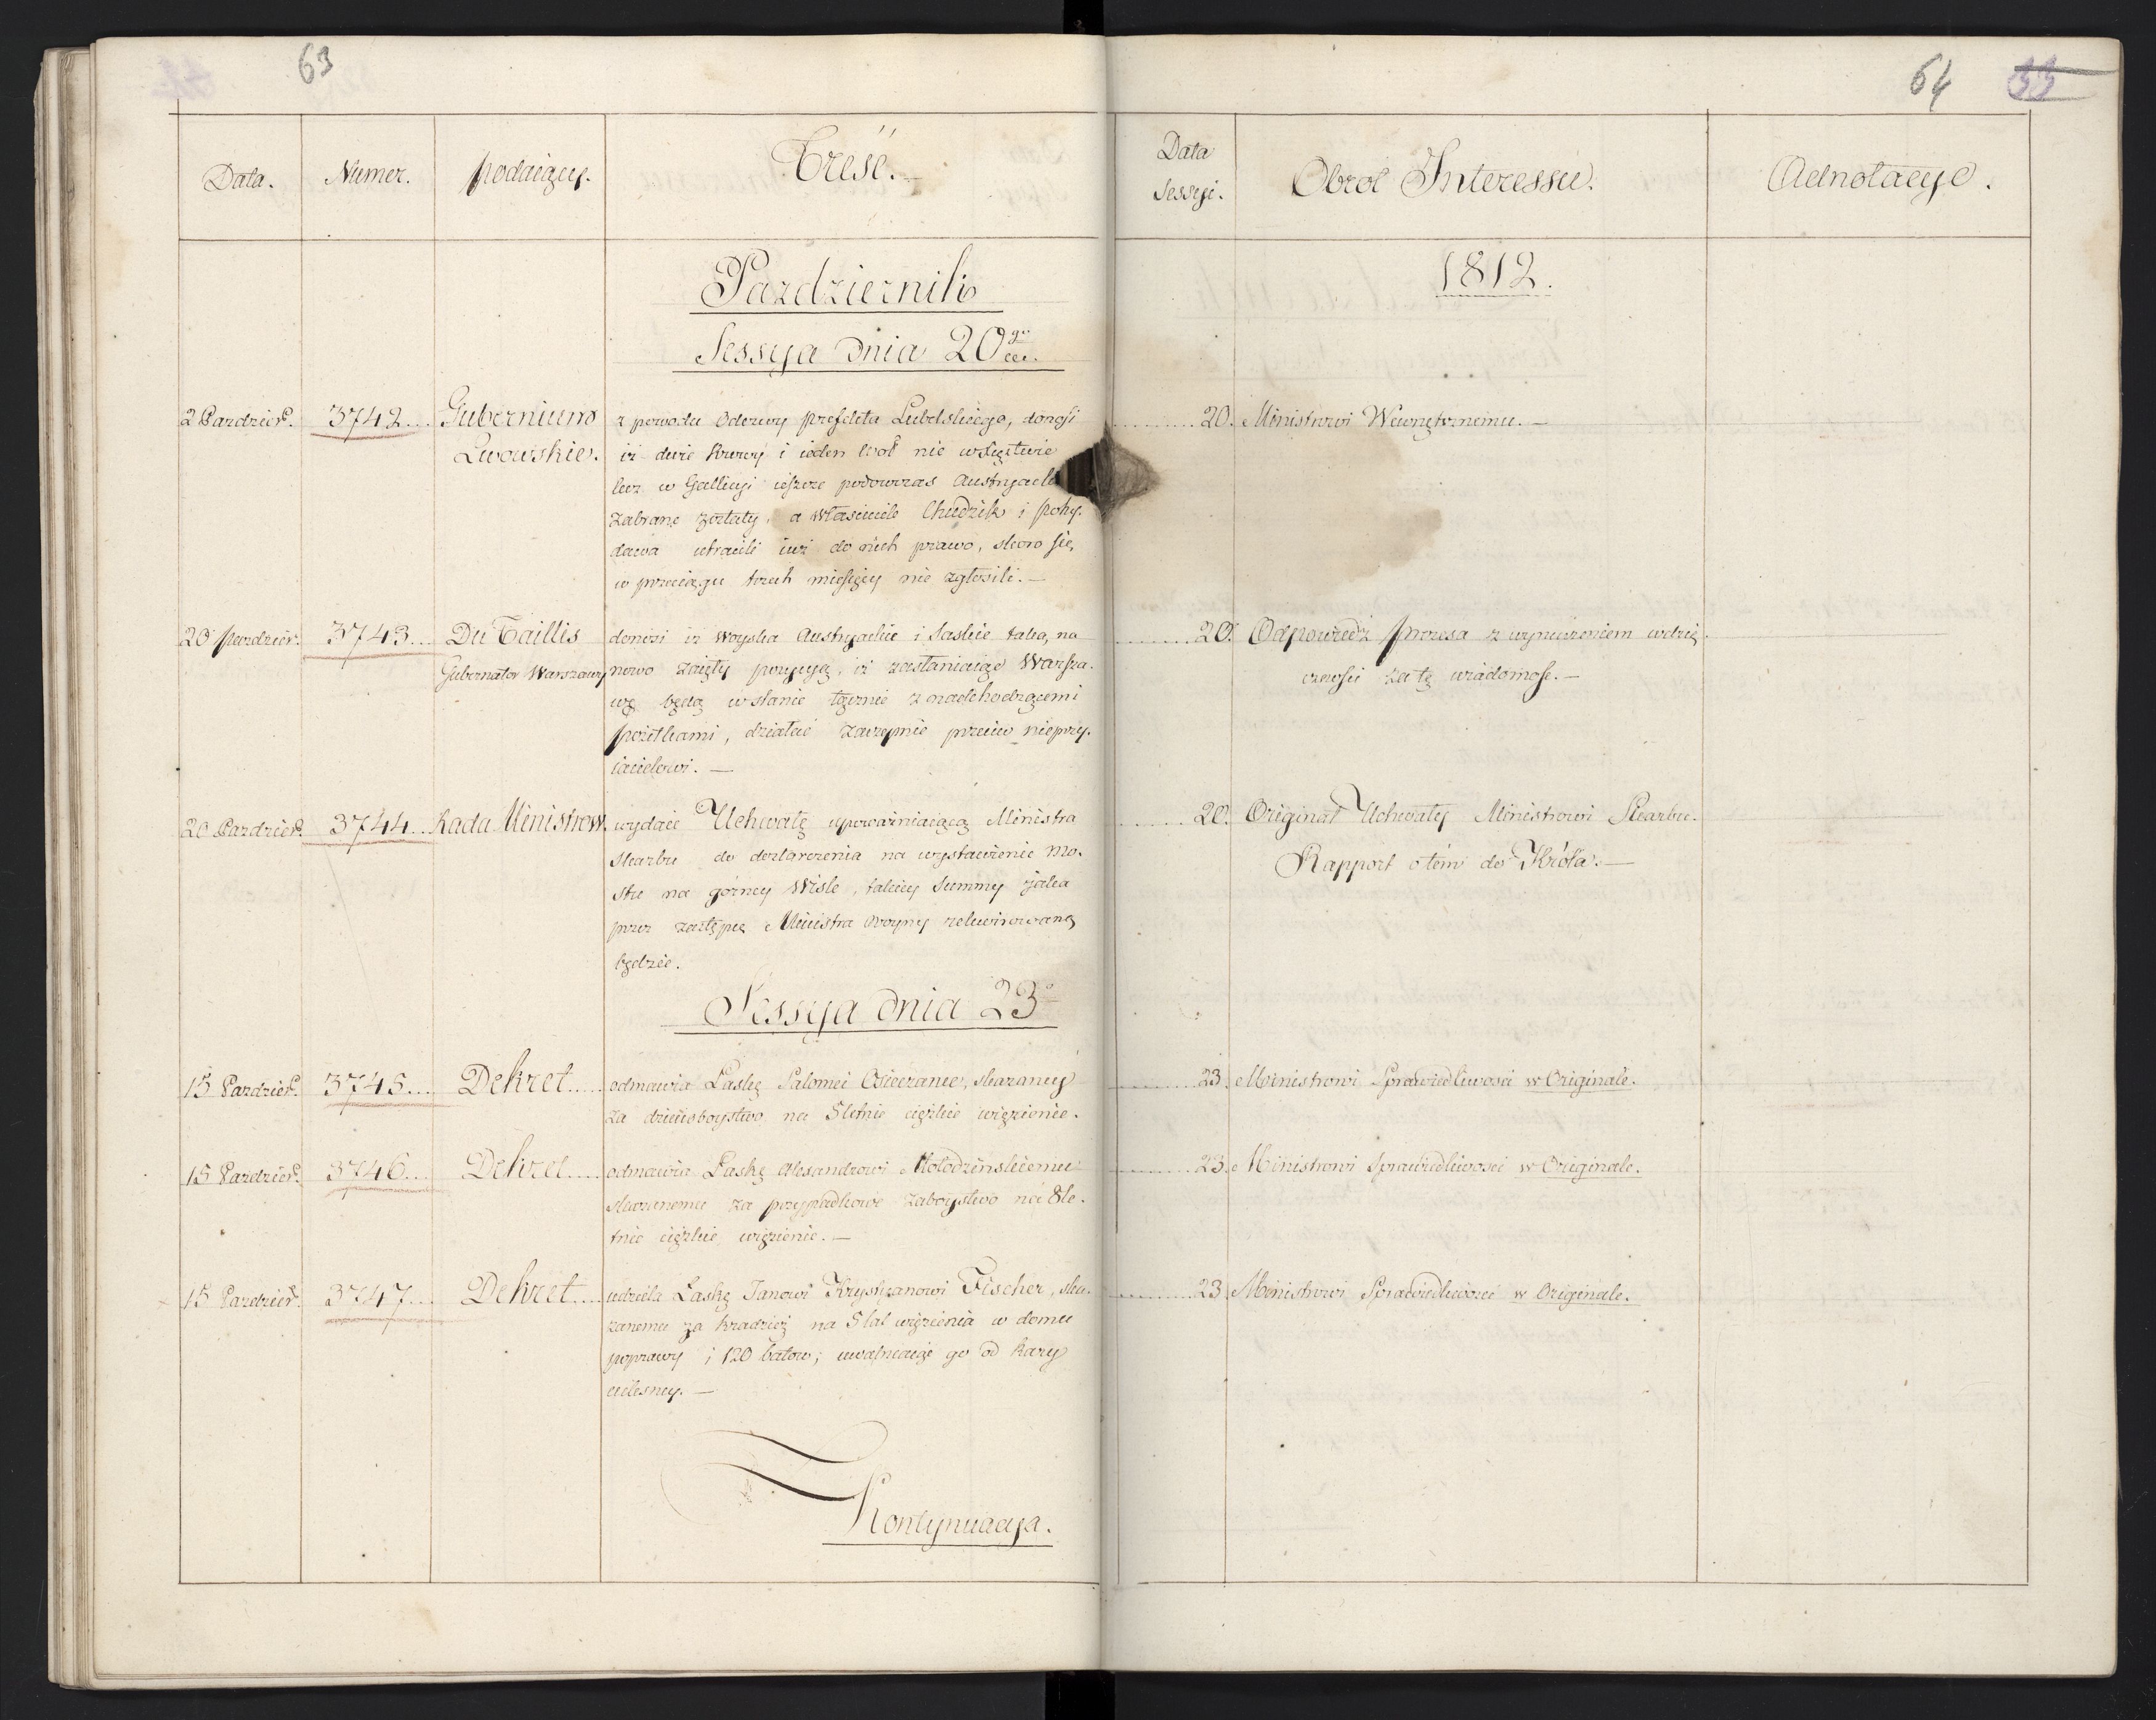 63
64 33
Data. Numer. Podaiący. Treść. Data Sessyi. Obrot Interessu. Adnotacye.
Pazdziernik
1812.
Sessya dnia 20go
2 Pazdzier. 3742... Gubernium z powodu Odezwy Prefekta Lubelskiego, donosi
Lwowskie. iż dwie Krowy i ieden Woł nie w
lecz w Gallicyi ieszcze podowczas Austryack
zabrane zostały, a właściciele Chudzik i
utracili iuż do nich prawo, skoro się
w przeciągu trzech miesięcy nie zgłosili.—
20. Ministrowi Wewnętrznemu.—
20 Pazdzier. 3743... Du Taillis donosi iż Woyska Austryackie i Saskie taką, na
Gubernator Warszawy nowo zaięły pozycyą, iż zasłaniaiąc Warsza-
wę będą w stanie łącznie z nadchodzącemi
posiłkami, działać zaczepnie przeciw nieprzy-
iacielowi.—
20. Odpowiedź Prezesa z wynurzeniem wdzię-
czności za tę wiadomość.—
20 Pazdzier. 3744... Rada Ministrow. wydaie Uchwałę upoważniaiącą Ministra
Skarbu do dostarczenia na wystawienie mo-
stu na górney Wiśle, takiey Summy iaka
przez zastępcę Ministra Woyny rekwirowaną
będzie.
20. Originał Uchwały Ministrowi Skarbu.
Rapport o tém do Króla.—
Sessya dnia 23o
15 Pazdzier. 3745... Dekret.... odmawia Łaskę Salomei, skazaney
za dzieciobóystwo na 5letnie ciężkie więzienie.
23. Ministrowi Sprawiedliwości w Originale.
15 Pazdzier. 3746... Dekret.... odmawia Łaskę Alexandrowi Mołodzinskiemu
skazanemu za przypadkowe zaboystwo na 8le-
tnie ciężkie więzienie.—
23. Ministrowi Sprawiedliwości w Originale.
15 Pazdzier. 3747... Dekret.... udziela Łaskę Janowi Krysztianowi Fischer, ska-
zanemu za kradzież na 5 lat więzienia w domu
poprawy i 120 batow; uwalniaiąc go od kary
cielesney.—
23. Ministrowi Sprawiedliwości w Originale.
Kontynuacya.